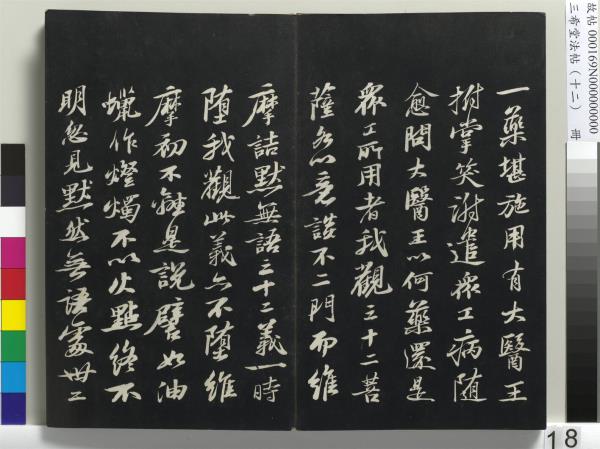 一藥堪施用有大醫王
拊掌笑謝遣眾工病隨
愈問大醫王以何藥還是
眾工所用者我觀三十二菩
薩各以意談不二門而維
摩詰默無語三十二義一時
墮我觀此義亦不墮維
摩初不離是說譬如油
蠟作燈燭不以火點終不
明忽見默然無語處卅二
故帖 000169N000000000
三希堂法帖(十二) 冊
18